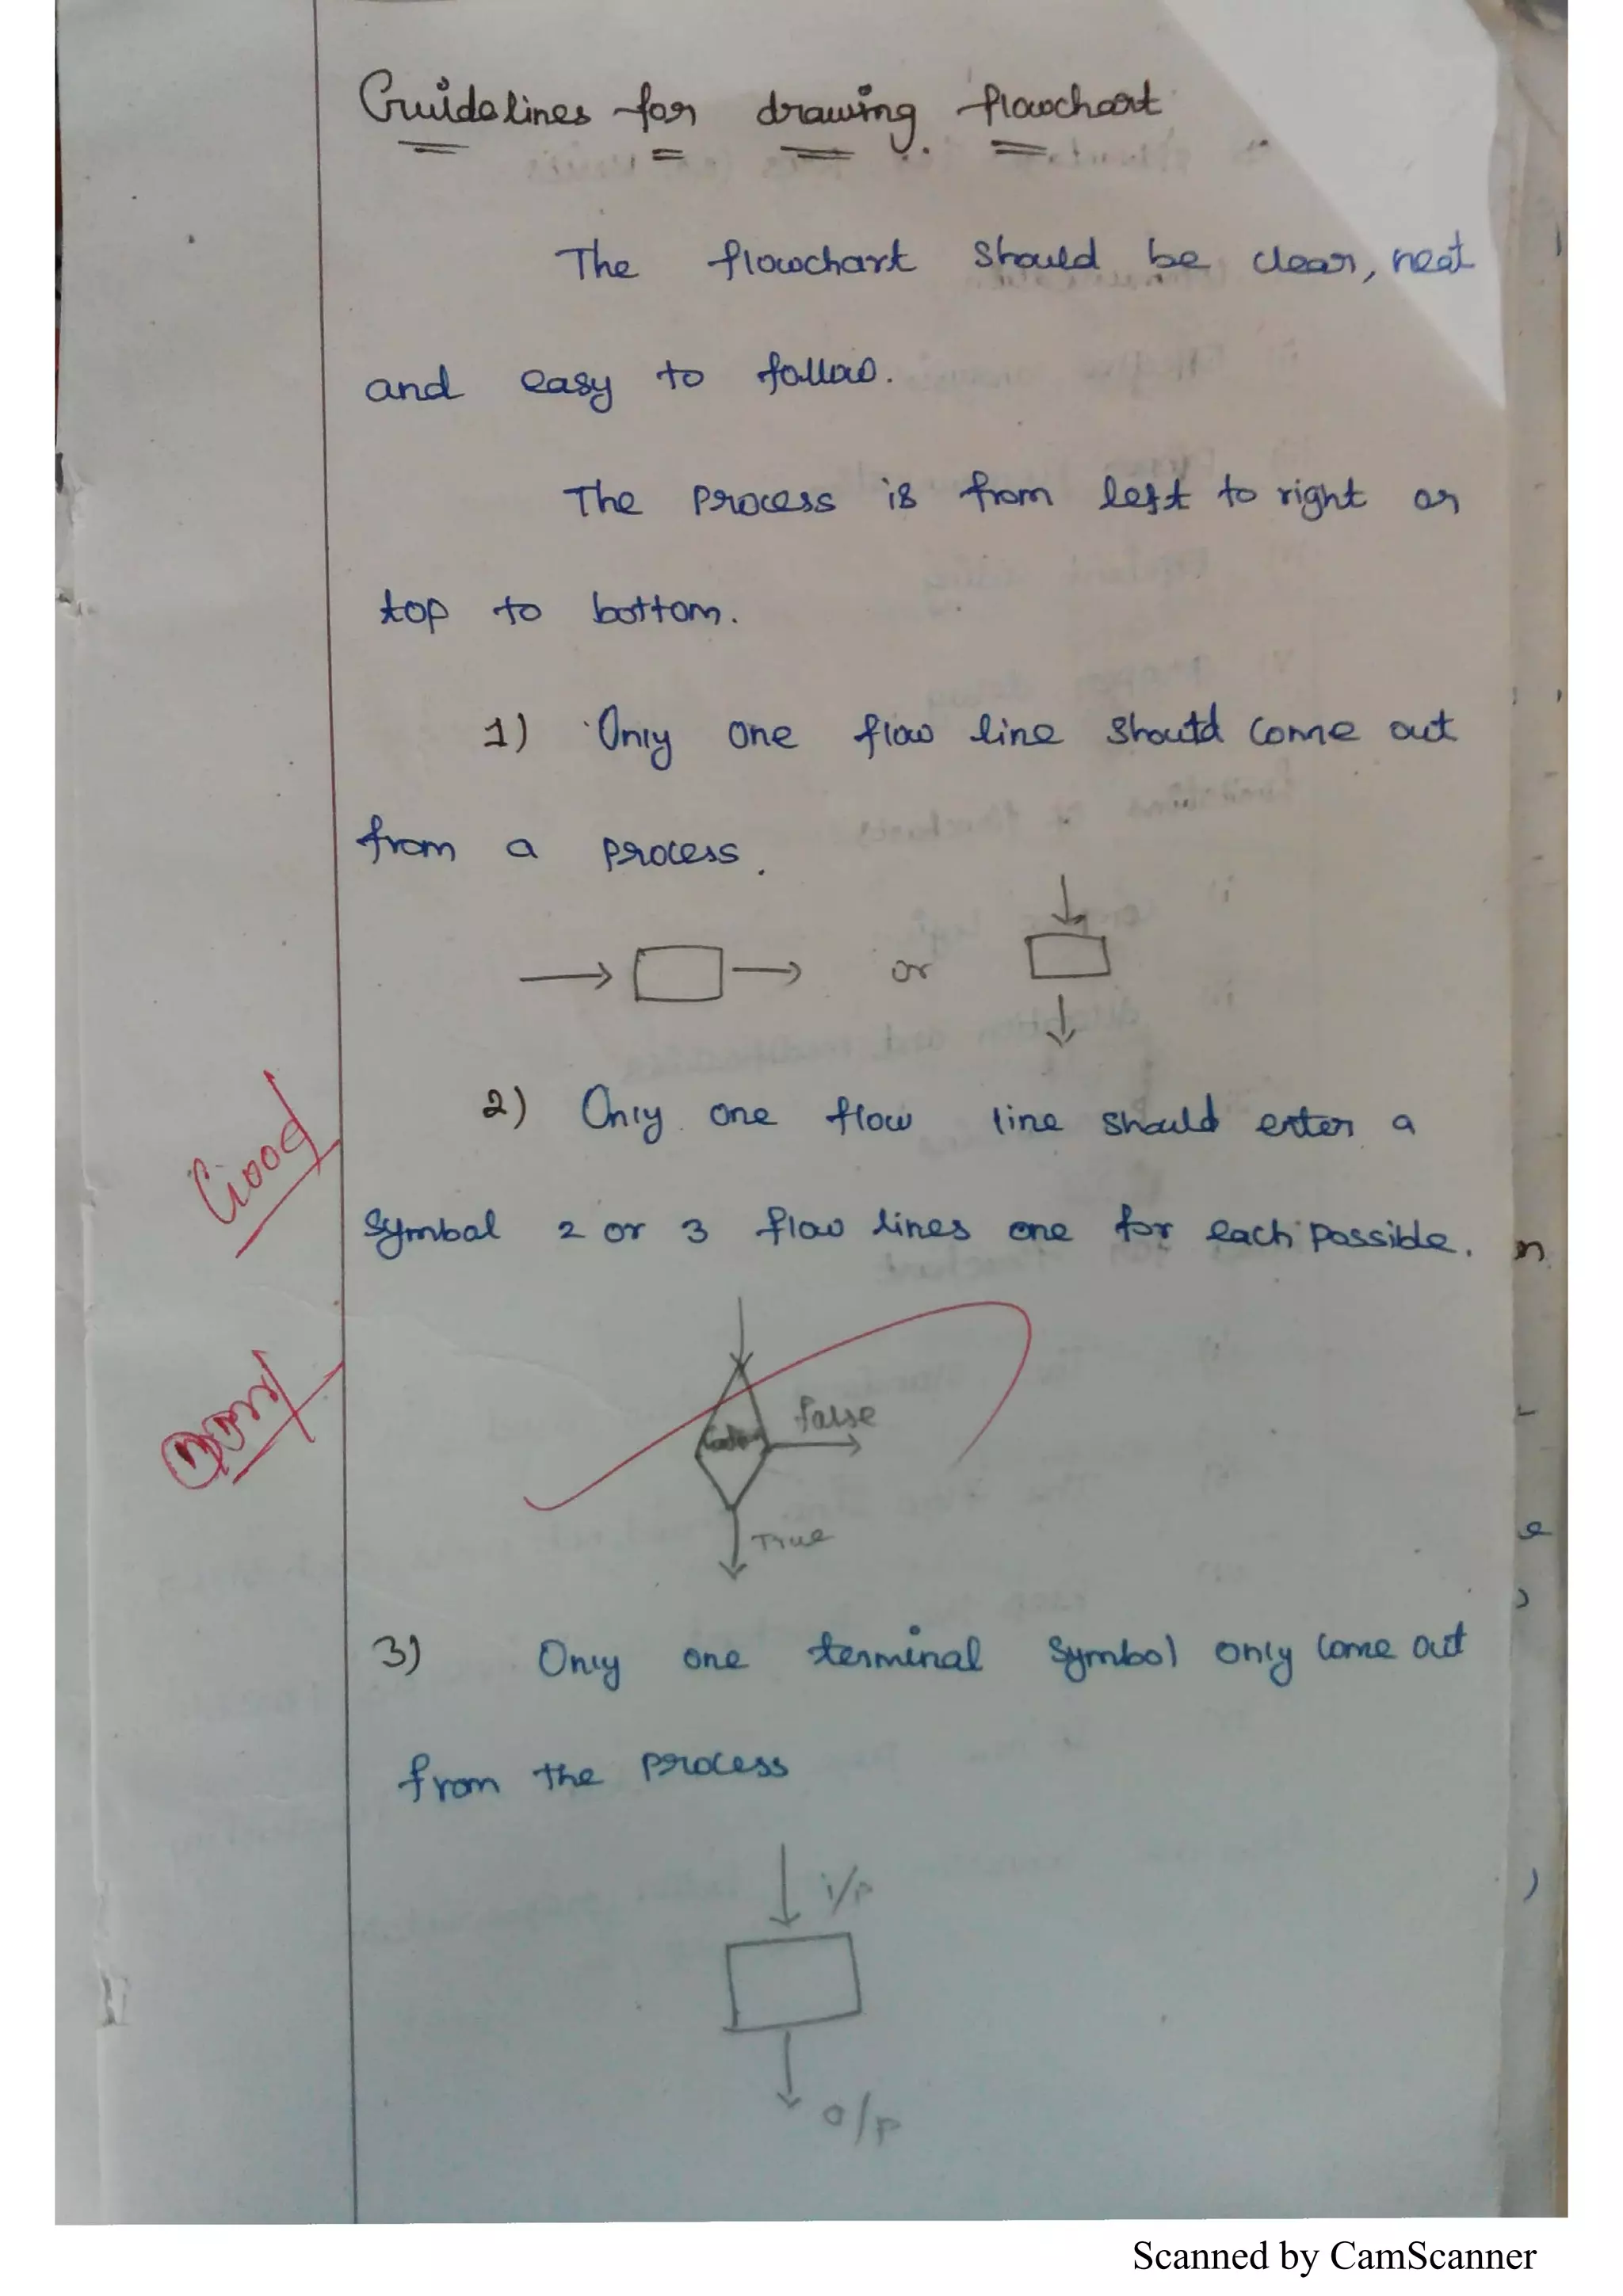 Guidelines for drawing flowchart
The flowchart should be clear, neat
and easy to follow.
The process is from left to right or
top to bottom.
1) Only one flow line should come out
from a process.
or
2) Only one flow line should enter a
Good
Symbol 2 or 3 flow lines one for each possible.
n
False
True
3) Only one terminal symbol only come out
from the process
i/p
o/p
Scanned by CamScanner